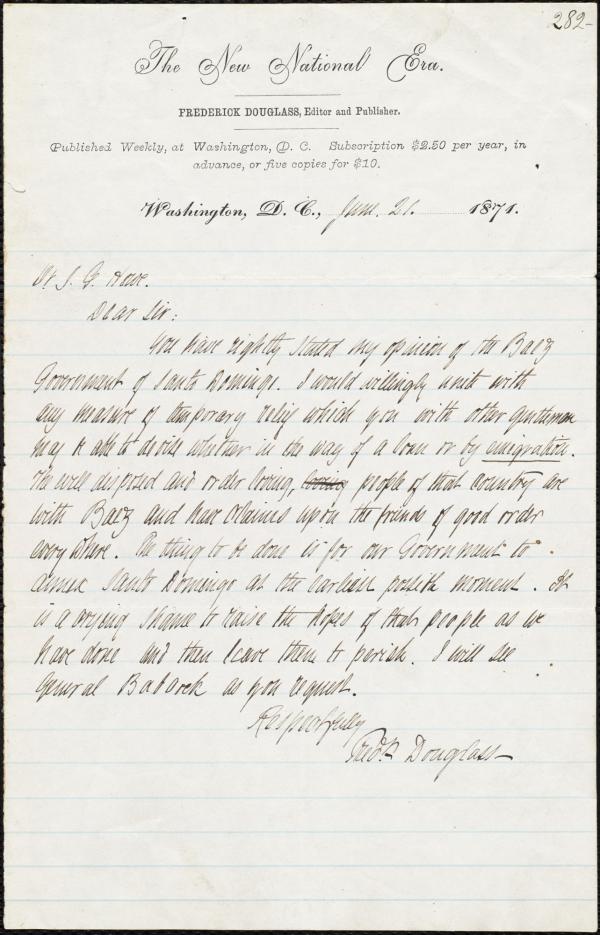 282-
The New National Era.
FREDERICK DOUGLASS, Editor and Publisher.
Published Weekly, at Washington, D. C. Subscription $2.50 per year, in
advance, or five copies for $10.
Washington, D. C., June. 21. 1871.
Dr S. G. Howe.
Dear Sir:
You have rightly stated my opinion of the Baez
Government of Santo Domingo. I would willingly unite with
any measure of temporary relief which you with other gentlemen
may be able to devise whether in the way of a loan or by emigration.
The well disposed and order loving, loving people of that country are
with Baez and have claims upon the friends of good order
every where. The thing to be done is for our Government to
annex Santo Domingo at the earliest possible moment. It
is a crying shame to raise the hopes of that people as we
have done and then leave them to perish. I will see
General Babcock as you request.
Respectfully
Fredk Douglass